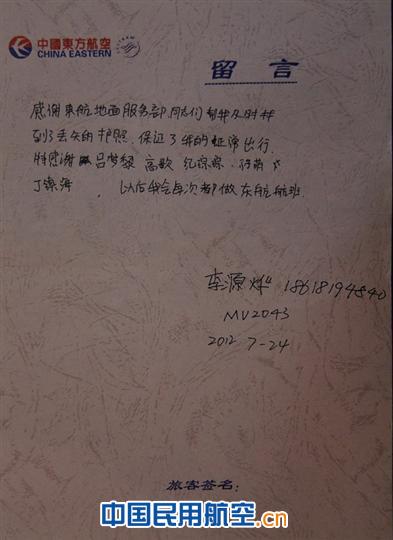 中國東方航空
CHINA EASTERN
留言
感谢东航地面服务部同志们帮我及时找
到了丢失的护照,保证了我的正常出行.
特感谢 吕梦黎 高歌
丁 海. 以后我会每次都做东航航班.
李源 18618194840
MU2043
2012 7-24
旅客签名:
中国民用航空.cn